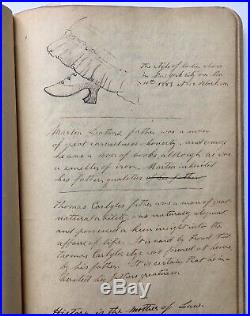 The style of ladies shoes
in city on the
11th 1883
Martin Luthers father was a man
of great correctness, honesty, and
a man of books although was
a smelter of iron. Martin inherited
his fathers qualities of his father
Thomas Carlyles father was a man of great
natural ability, was naturally eloquent
and possessed a keen insight into the
affairs of life. It is said by Froud that
Thomas Carlyles style was formed at home
by his father. It is certain that he in-
herited his fathers greatness.
History is the mother of Law.
hibid.com